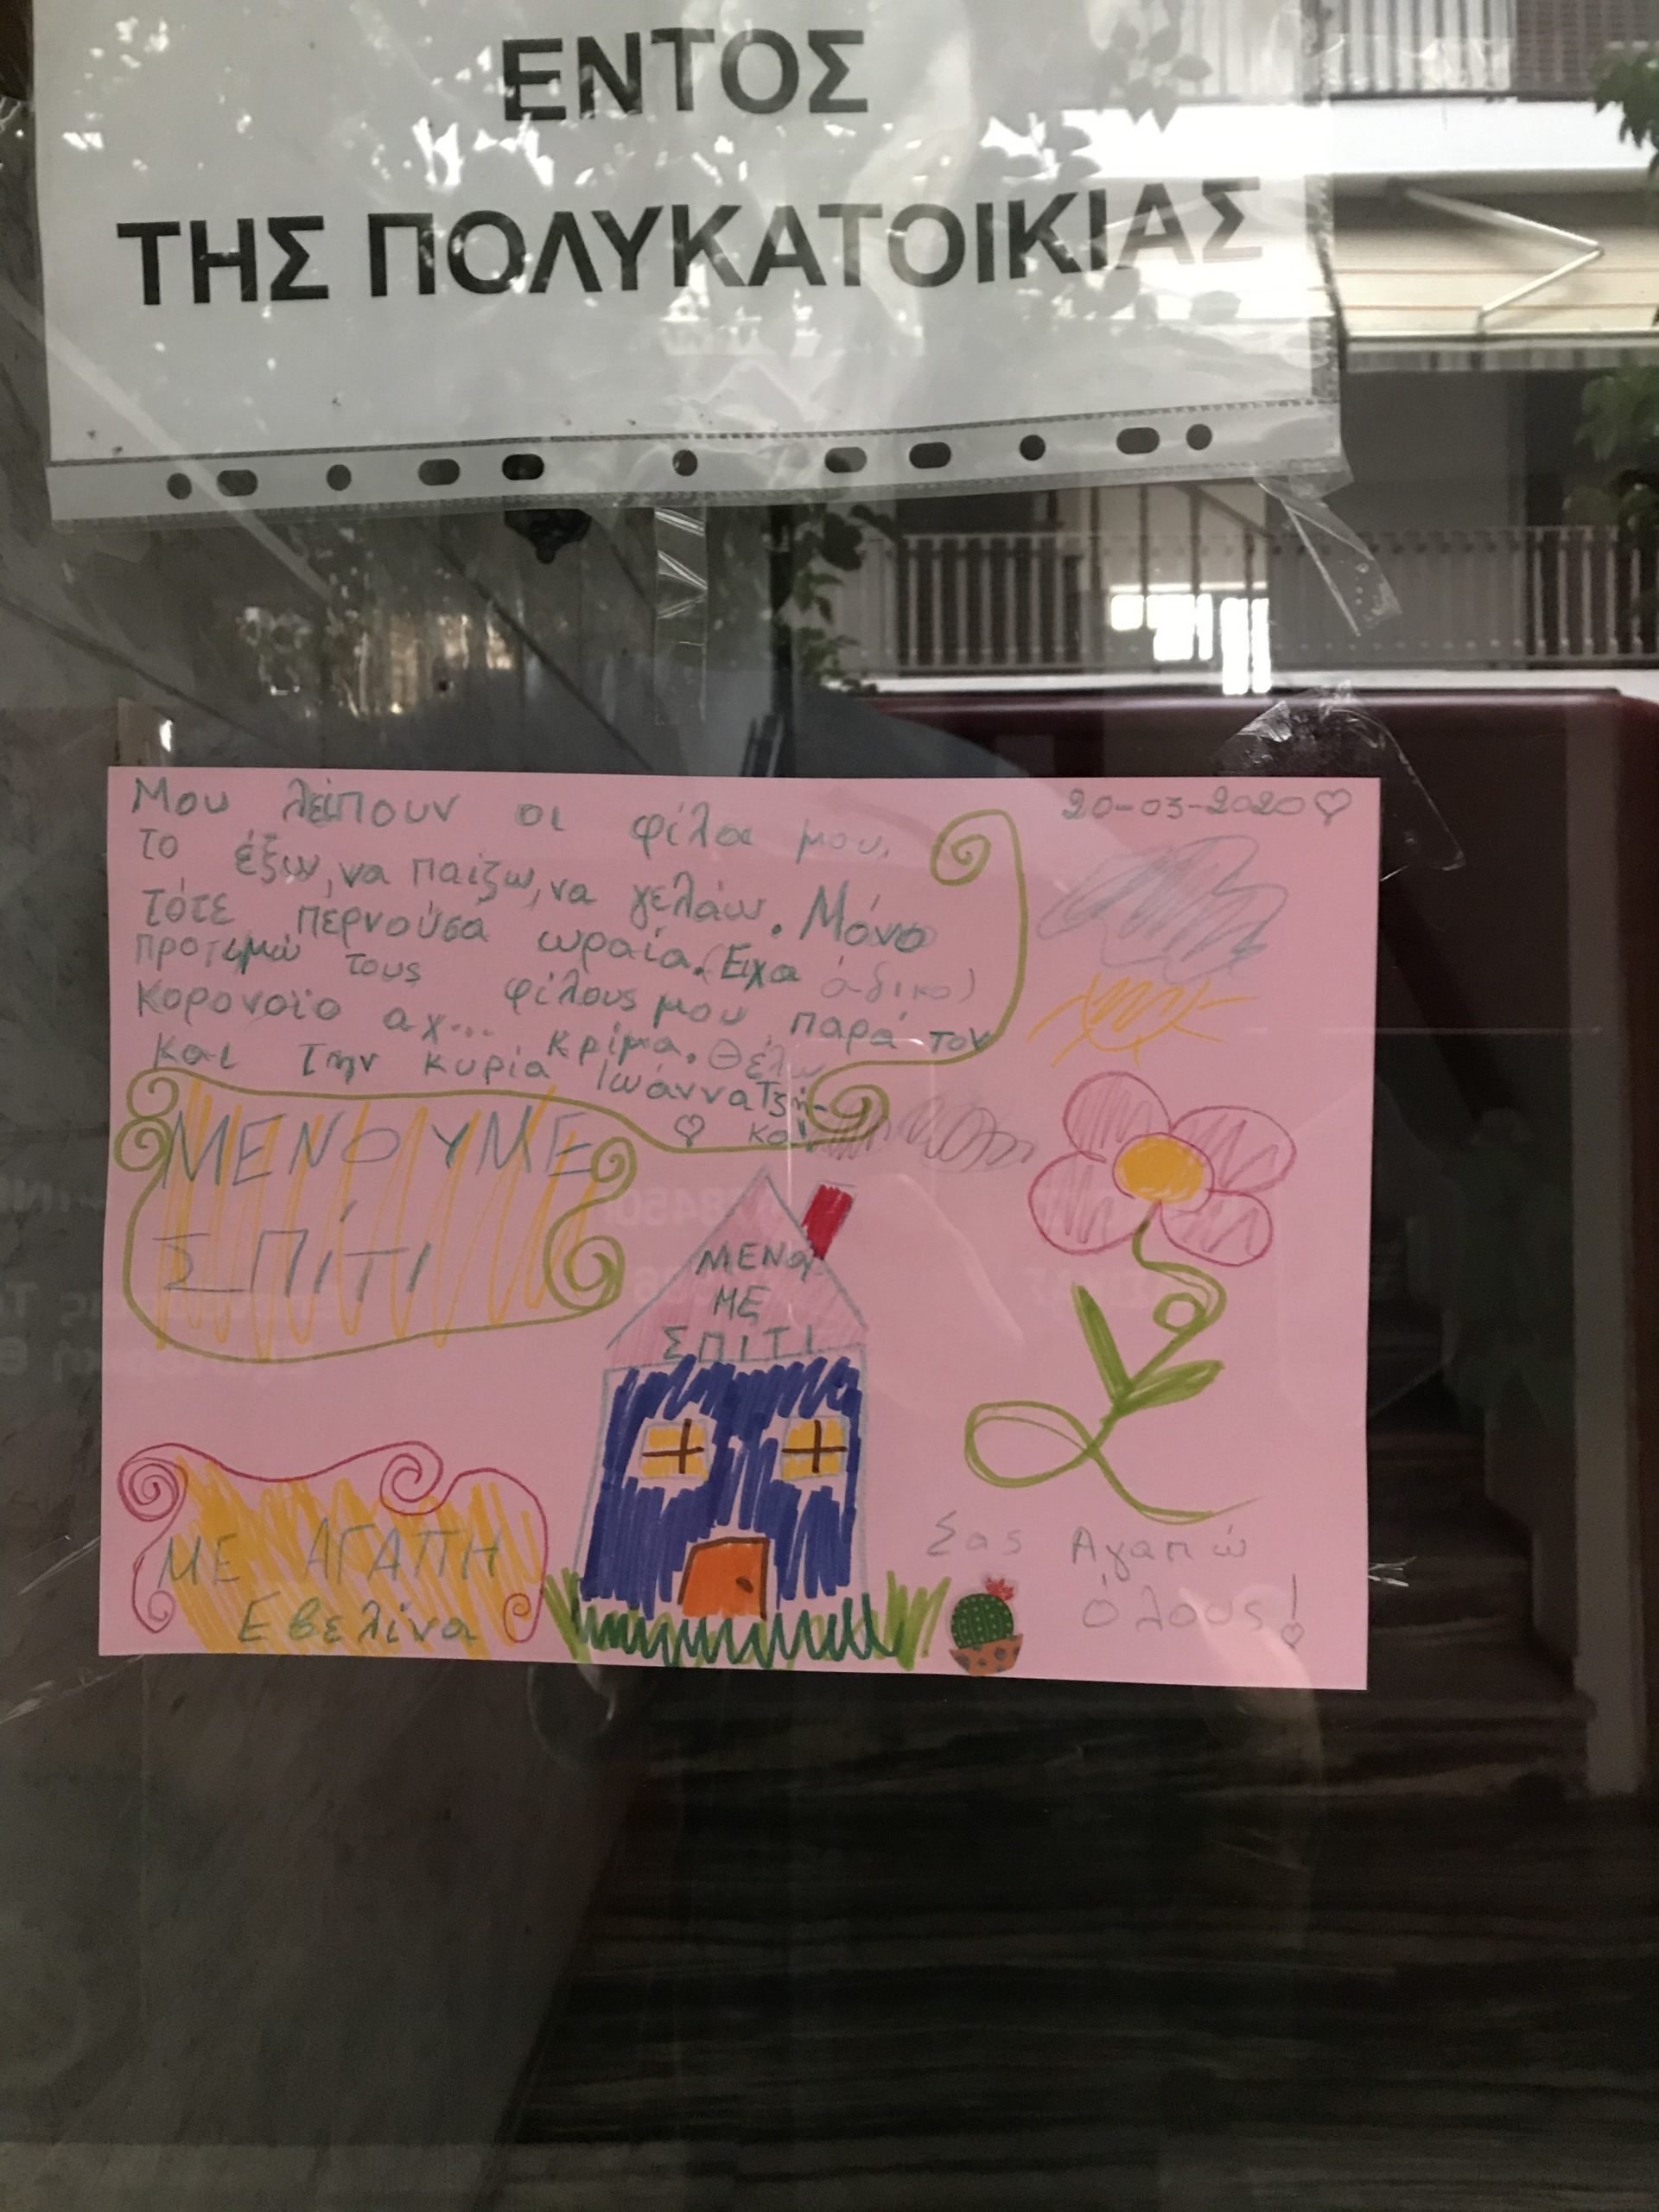 ΕΝΤΟΣ
ΤΗΣ ΠΟΛΥΚΑΤΟΙΚΙΑΣ
20-03-2020
Μου λείπουν οι φίλοι μου,
το έξω, να παίζω, να γελάω. Μόνο
τότε πέρνούσα ωραία. (Είχα άδικο)
προτιμώ τους φίλους μου παρά τον
κορονοϊο αχ... κρίμα. Θέλω
και την κυρία Ιωάννα Τζή-
κα!
ΜΕΝΟΥΜΕ
ΣΠίΤΙ
ΜΕΝΟΥ
ΜΕ
ΣΠΙΤΙ
ΜΕ ΑΓΑΠΗ
Εβελίνα
Σας Αγαπώ
όλους!